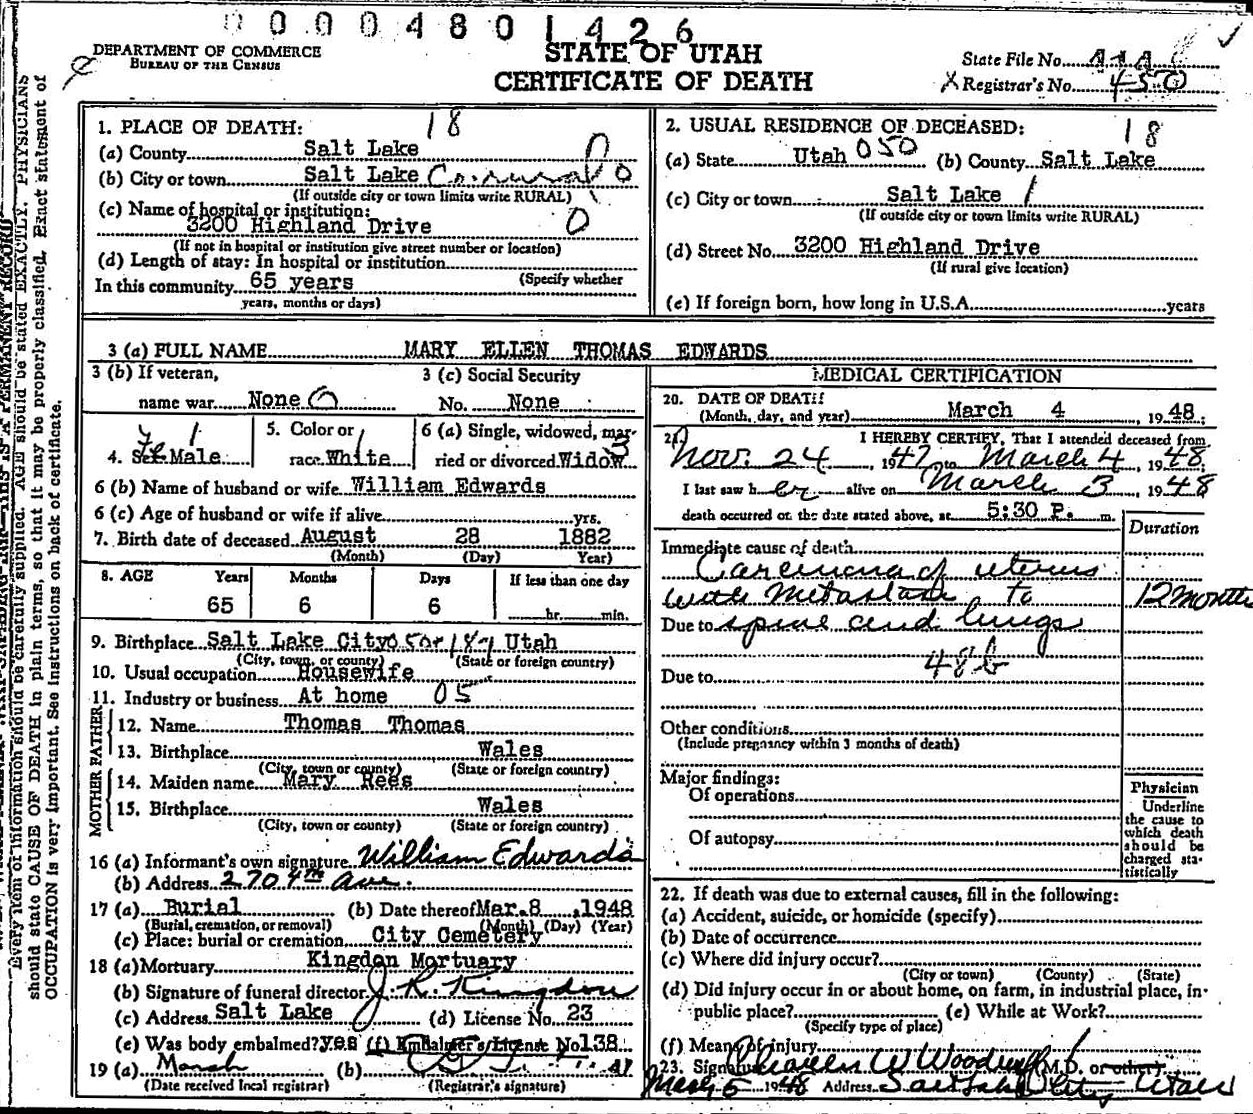 0 0 0 0 4 8 0 1 4 2 6
DEPARTMENT OF COMMERCE
BUREAU OF THE CENSUS
STATE OF UTAH
CERTIFICATE OF DEATH
State File No.
Registrar's No. 450
Every item of information should be carefully supplied. AGE should be stated EXACTLY. PHYSICIANS
should state CAUSE OF DEATH in plain terms, so that it may be properly classified. Exact statement of
OCCUPATION is very important. See instructions on back of certificate.
1. PLACE OF DEATH: 18
(a) County Salt Lake 0
(b) City or town Salt Lake Co. rural 0
(If outside city or town limits write RURAL)
(c) Name of hospital or institution:
3200 Highland Drive 0
(If not in hospital or institution give street number or location)
(d) Length of stay: In hospital or institution
(Specify whether
In this community 65 years
years, months or days)
2. USUAL RESIDENCE OF DECEASED: 18
(a) State Utah 050 (b) County Salt Lake
(c) City or town Salt Lake 1
(If outside city or town limits write RURAL)
(d) Street No. 3200 Highland Drive
(If rural give location)
(e) If foreign born, how long in U.S.A. years
3 (a) FULL NAME MARY ELLEN THOMAS EDWARDS
3 (b) If veteran,
name war None 0
3 (c) Social Security
No. None
4. Sex Fe Male 1
5. Color or
race White 1
6 (a) Single, widowed, mar-
ried or divorced Widow 3
6 (b) Name of husband or wife William Edwards
6 (c) Age of husband or wife if alive yrs.
7. Birth date of deceased August 28 1882
(Month) (Day) Year)
8. AGE Years Months Days If less than one day
65 6 6 hr. min.
9. Birthplace Salt Lake City Utah
(City, town, or county) (State or foreign country)
10. Usual occupation Housewife
11. Industry or business At home 05
FATHER
12. Name Thomas Thomas
13. Birthplace Wales
(City, town or county) (State or foreign country)
MOTHER
14. Maiden name Mary Rees
15. Birthplace Wales
(City, town or county) (State or foreign country)
16 (a) Informant's own signature William Edwards
(b) Address 270 4th Ave.
17 (a) Burial (b) Date thereof Mar. 8 , 1948
(Burial, cremation, or removal) (Month) (Day) (Year)
(c) Place: burial or cremation City Cemetery
18 (a) Mortuary Kingdon Mortuary
(b) Signature of funeral director J R Kingdon
(c) Address Salt Lake (d) License No. 23
(e) Was body embalmed? yes (f) Embalmer's License No. 138
19 (a) March (b)
(Date received local registrar) (Registrar's signature)
MEDICAL CERTIFICATION
20. DATE OF DEATH
(Month, day, and year) March 4 , 1948.
21. I HEREBY CERTIFY, That I attended deceased from
Nov. 24 , 1947 to March 4 , 1948.
I last saw her alive on March 3 , 1948
death occurred on the date stated above, at 5:30 P. m.
Duration
Immediate cause of death
Carcinoma of uterus
with Metastasis to 12 months
Due to spine and lungs
48b
Due to
Other conditions
(Include pregnancy within 3 months of death)
Major findings:
Of operations
Of autopsy
Physician
Underline
the cause to
which death
should be
charged sta-
tistically
22. If death was due to external causes, fill in the following:
(a) Accident, suicide, or homicide (specify)
(b) Date of occurrence
(c) Where did injury occur?
(City or town) (County) (State)
(d) Did injury occur in or about home, on farm, in industrial place, in-
public place? (e) While at Work?
(Specify type of place)
(f) Means of injury
23. Signature Charles W Woodruff (M.D. or other)
March 5 1948 Address Salt Lake City Utah